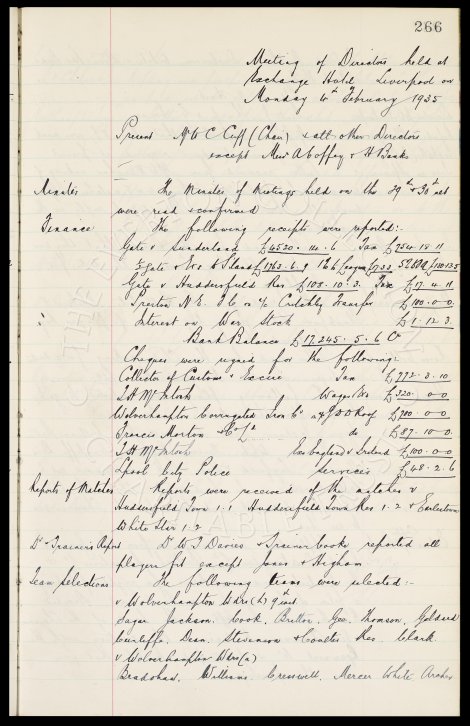 266
Meeting of Directors held at
Exchange Hotel Liverpool on
Monday 4th February 1935
Present Mr W C Cuff (Chair) & all other Directors
except Messrs A Coffey & H Banks
Minutes The Minutes of Meetings held on the 29th & 30th ult
were read & confirmed
Finance The following receipts were reported:-
Gate v Sunderland £4520.14.6 Tax £754.18.11
½ Gate & Exs @ S'land £1763.6.9
Gate v Huddersfield Res £103.10.3 Tax £17.4.11
Preston N.E. F.C. on a/c Critchley Transfer £100.0.0
Interest on War Stock £1.12.3
Bank Balance £17,245.5.6 Cr
Cheques were signed for the following:-
Collector of Customs & Excise Tax £772.3.10
T.H. McIntosh Wages &c £320.0.0
Wolverhampton Corrugated Iron Co £700.0.0
Francis Morton & Co Ld do £87.10.0
T.H. McIntosh Exs England v Ireland £100.0.0
L'pool City Police Services £48.2.6
Reports of Matches Reports were received of the matches v
Huddersfield Town 1.1 Huddersfield Town Res 1.2 & Earlestown
White Star 1.2
Dr & Trainers Report Dr W J Davies & Trainer Cooke reported all
players fit except Jones & Higham
Team Selections The following teams were selected:-
v Wolverhampton Wdrs (h) 9th inst.
Sagar Jackson. Cook, Britton, Gee. Thomson, Geldard
Cunliffe, Dean, Stevenson & Coulter Res. Clark
v Wolverhampton Wdrs (a)
Bradshaw, Williams, Cresswell, Mercer White Archer